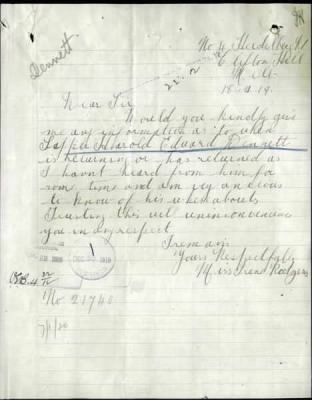 Dennett
No 4 Heidelberg Rd
Clifton Hill
Melb
18.9.19
22.2
Dear Sir
Would you kindly give
me any information as to when
Sapper Harold Edward Dennett
is returning or has returned as
I havnt heard from him for
some time and Am very anxious
to know of his whereabouts
Trusting this will uninconvenience
you in any respect
I remain
Yours Respectfully
Miss Irene Rodgers
No 21740